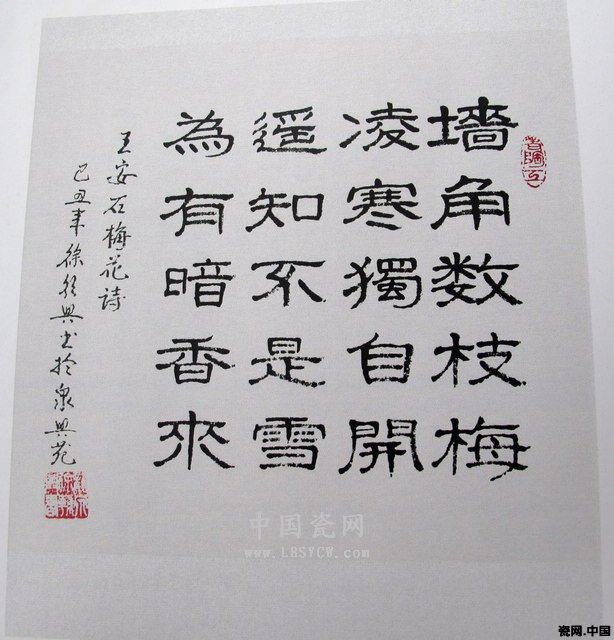 墻角数枝梅
凌寒獨自開
遥知不是雪
為有暗香來
王安石梅花诗
己丑年徐 興书於泉興苑
中国瓷网
www.LBSYCW.com
瓷网.中国